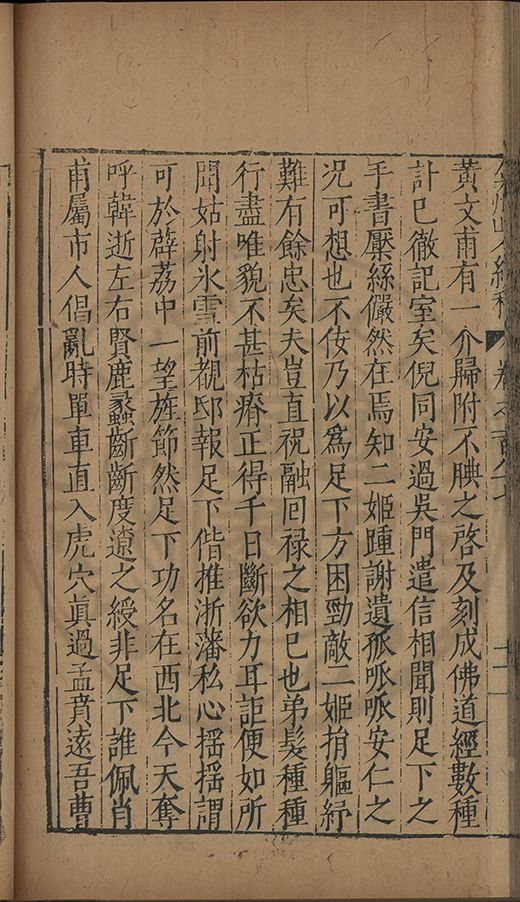 黃文甫有一介歸附不腆之啓及刻成佛道經數種
計已徹記室矣倪同安過吳門遣信相聞則足下之
手書檿絲儼然在焉知二姬踵謝遺孤呱呱安仁之
况可想也不佞乃以爲足下方困勁敵二姬捐軀紓
難有餘忠矣夫豈直祝融回禄之相已也弟髮種種
行盡唯貌不甚枯瘠正得千日斷欲力耳詎便如所
聞姑射氷雪前覩邸報足下偕推浙藩私心揺揺謂
可於薜荔中一望旌節然足下功名在西北今天奪
呼韓逝左右賢鹿蠡齗齗度遼之綬非足下誰佩肖
甫屬市人倡亂時單車直入虎穴眞過孟賁遠吾曹